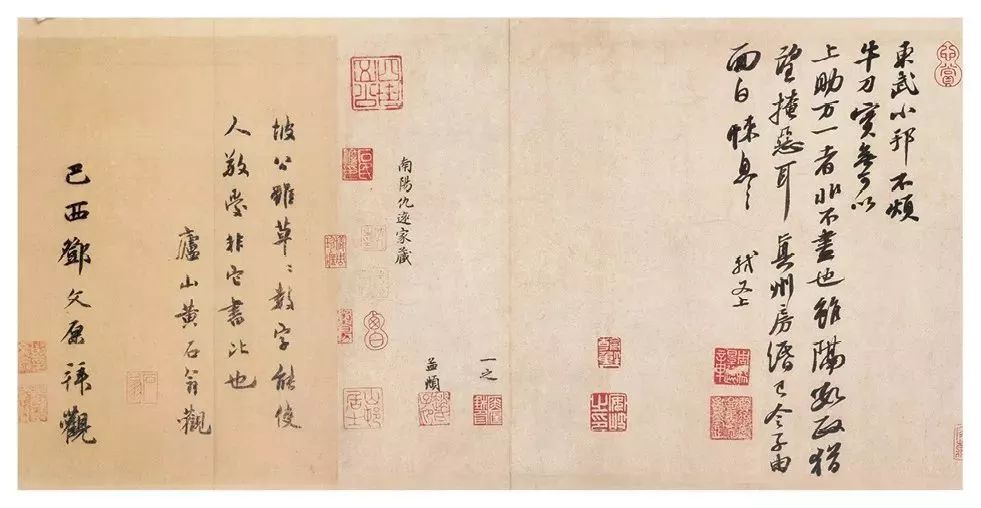 東武小邦不煩
牛刀實無可以
上助万一者非不盡也雖隔數政猶
望掩惡耳真州房緡已令子由
面白悚息〻
軾又上
一之
孟頫
南陽仇遠家藏
坡公雖草〻數字能使
人敬愛非它書比也
廬山黄石翁觀
己酉鄧文原拜觀